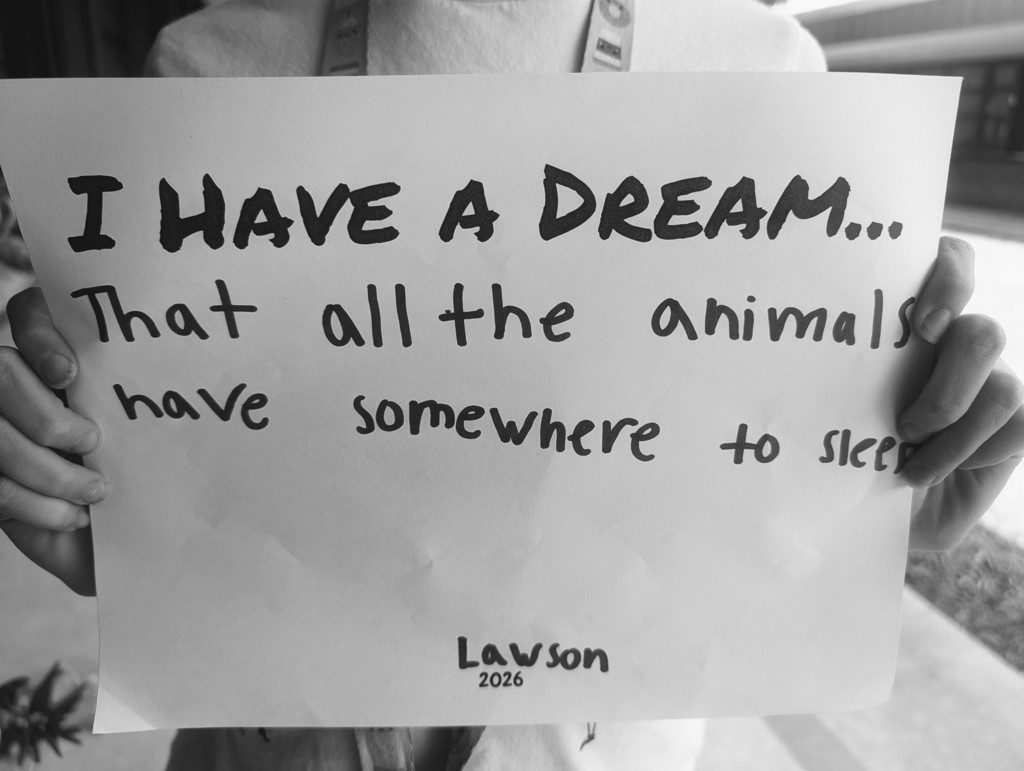 I HAVE A DREAM...
That all the animals
have somewhere to sleep
Lawson
2026